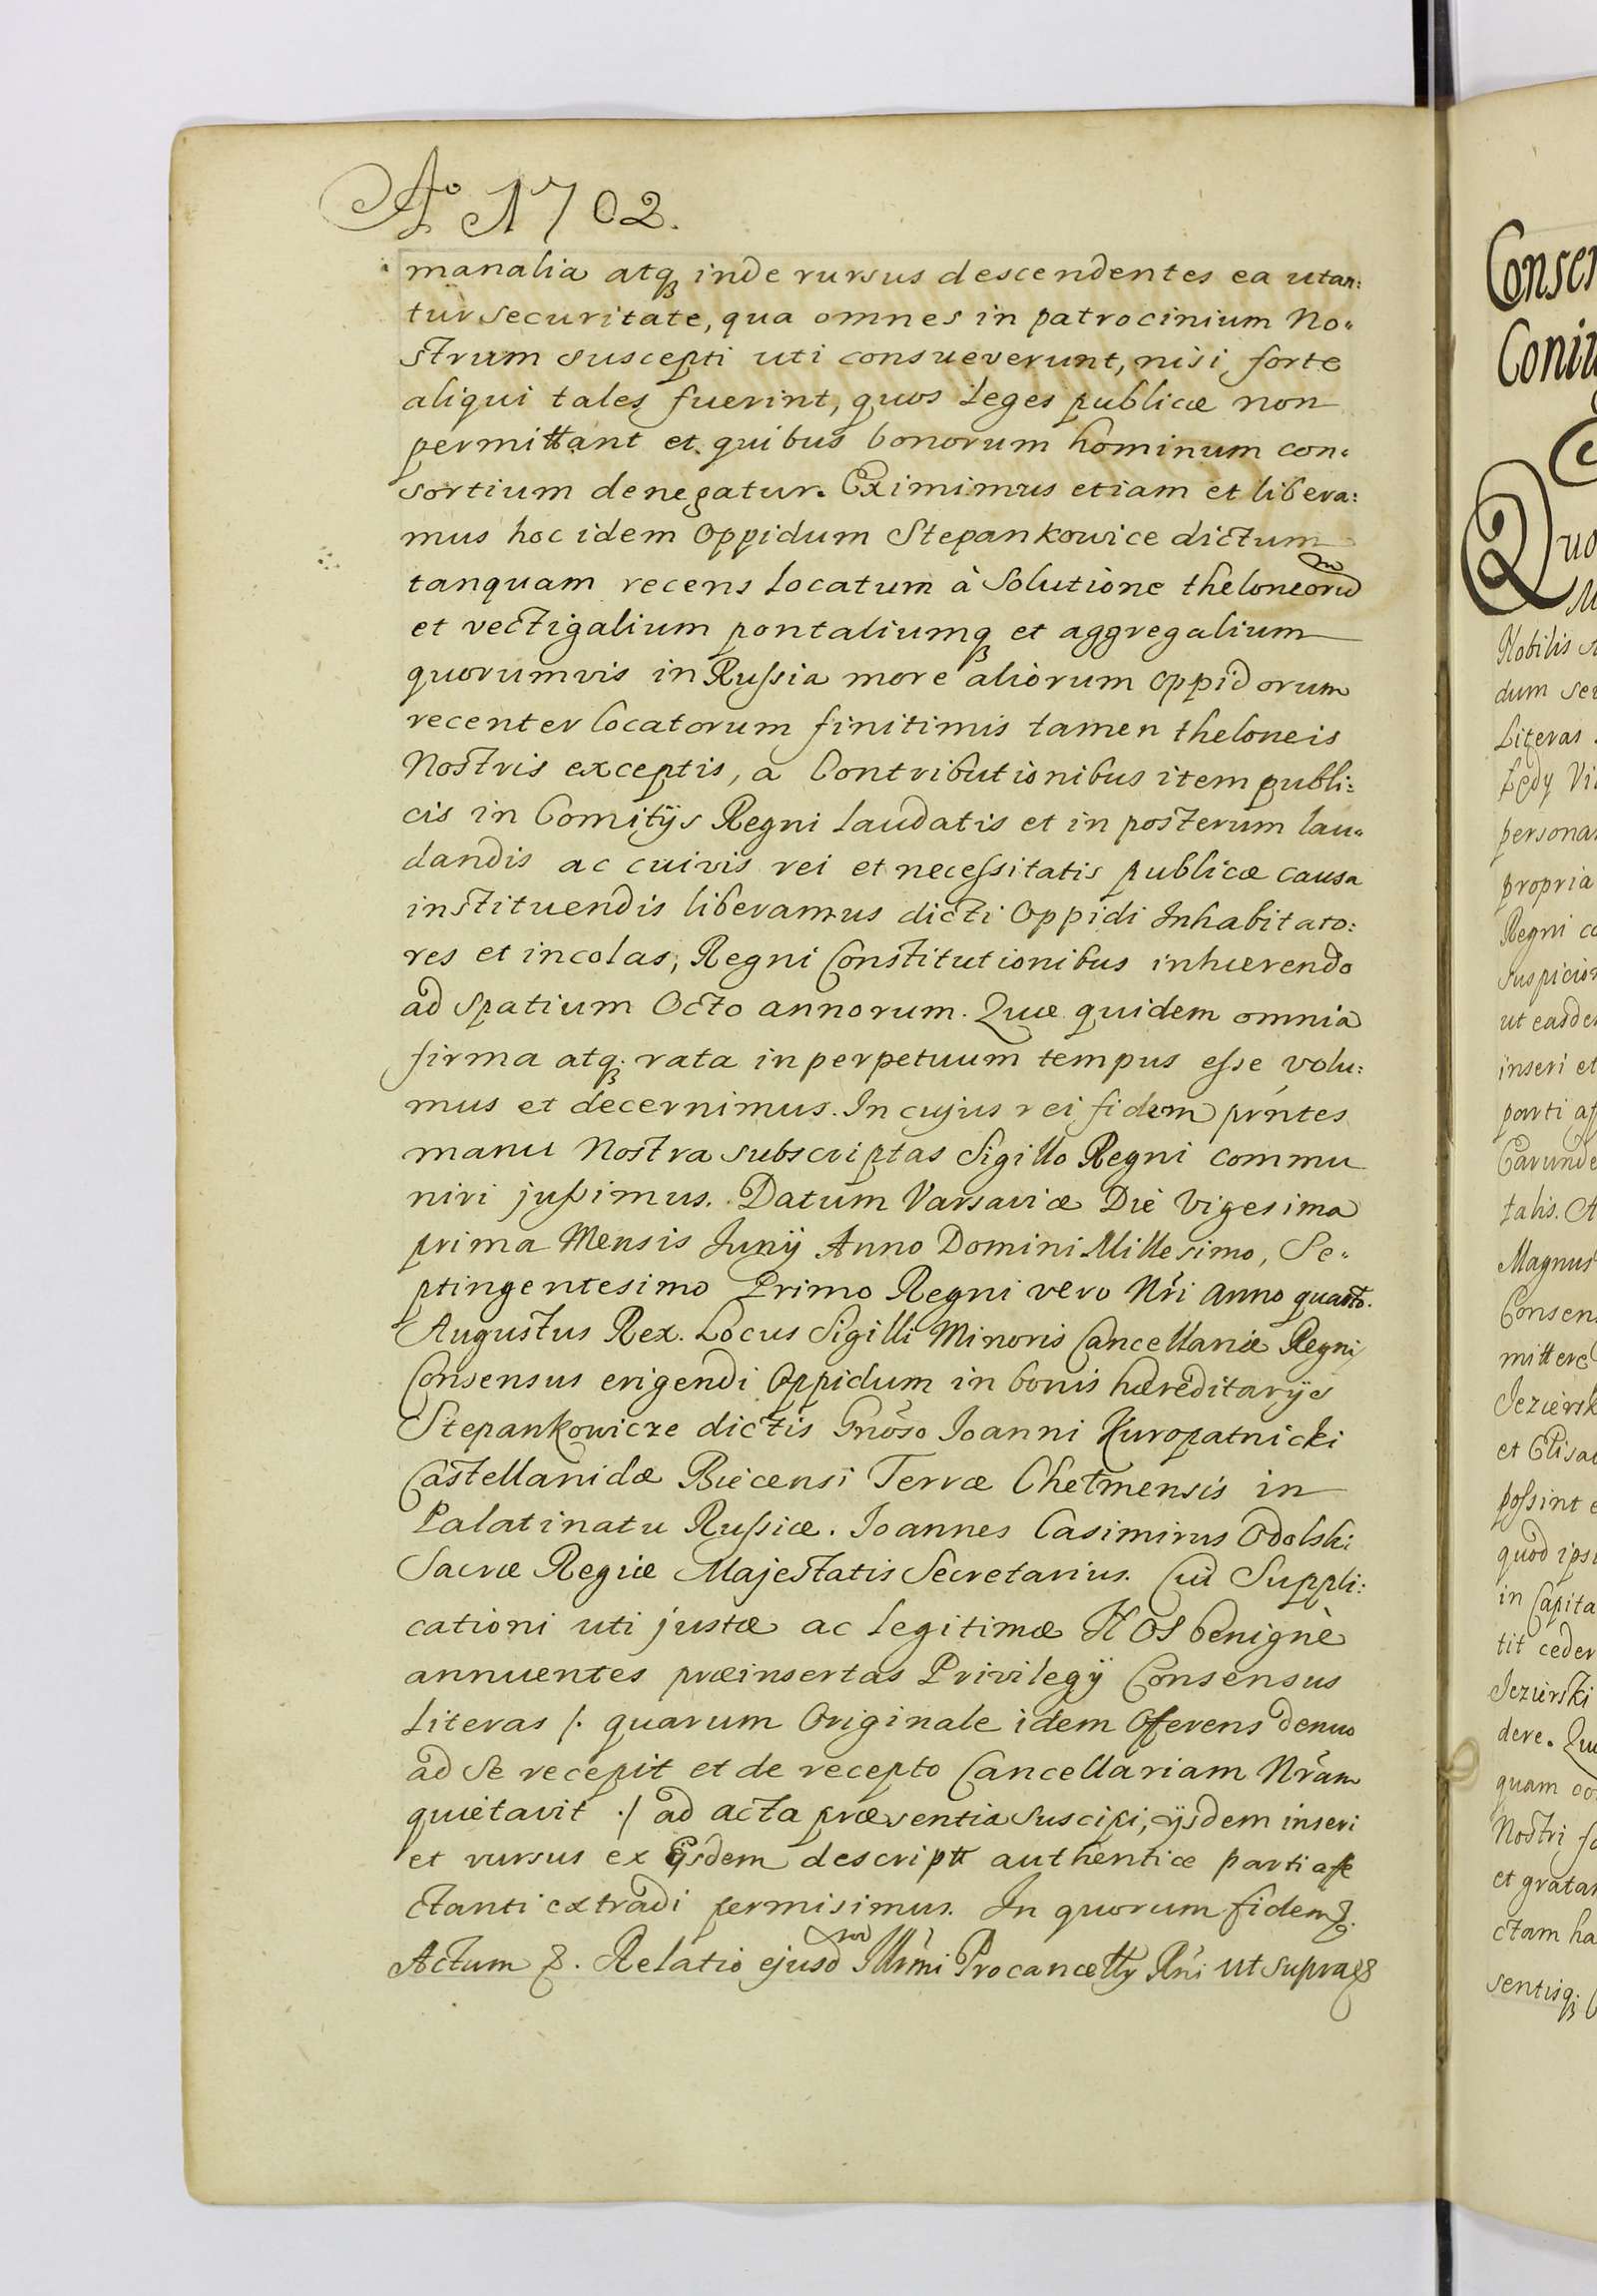 Aº 1702.
manalia atqꝫ inde rursus descendentes ea utan:
tur securitate, qua omnes in patrocinium No:
strum suscepti uti consueverunt, nisi forte
aliqui tales fuerint, quos Leges publicæ non
permittant et quibus bonorum hominum con:
sortium denegatur. Eximimus etiam et libera:
mus hoc idem Oppidum Stepankowice dictum
tanquam recens Locatum à Solutione theloneorū
et vectigalium pontaliumqꝫ et aggregalium
quorumvis in Russia more aliorum Oppidorum
recenter locatorum finitimis tamen theloneis
Nostris exceptis, a Contributionibus item publi:
cis in Comitijs Regni Laudatis et in posterum lau:
dandis ac cuivis rei et necessitatis publicæ causa
instituendis liberamus dicti Oppidi Inhabitato:
res et incolas, Regni Constitutionibus inhærendo
ad Spatium Octo annorum. Quæ quidem omnia
firma atqꝫ rata in perpetuum tempus esse volu:
mus et decernimus. In cujus rei fidem pr̃ntes
manu Nostra subscriptas Sigillo Regni commu
niri jussimus. Datum Varsaviæ Die Vigesima
prima Mensis Junij Anno Domini Millesimo, Se:
ptingentesimo Primo Regni vero Nr̃i Anno quarto.
Augustus Rex. Locus Sigilli Minoris Cancellariæ Regni
Consensus erigendi Oppidum in bonis hæreditarijs
Stepankowicze dictis Gnõso Joanni Kuropatnicki
Castellanidæ Biecensi Terræ Chełmensis in
Palatinatu Russiæ. Joannes Casimirus Odolski
Sacræ Regiæ Majestatis Secretarius. Cui Suppli:
cationi uti justæ ac Legitimæ NOS benignè
annuentes præinsertas Privilegij Consensus
Literas /. quarum Originale idem Offerens denuo
ad Se recepit et de recepto Cancellariam Nr̃am
quietavit ./ ad acta præsentia suscipi, ijsdem inseri
et rursus ex Eijsdem descriptt authentice parti affe
ctanti extradi permisimus. In quorum fidem &.
Actum &. Relatio ejusd Illr̃mi Procancelly Rñi ut supra &
Conser
Coniu
Quo
M
Nobilis
dum
Literas
Ledy Vi
persona
propria
Regni co
suspicion
ut easde
inseri et
parti af
Earunde
talis. A
Magnus
Consens
mittere
Jeziersk
et Elisa
possint e
quod ips
in Capita
tit ceder
Jezierski
dere. Qu
quam co
Nostri
et grata
ctam ha
sentisqꝫ